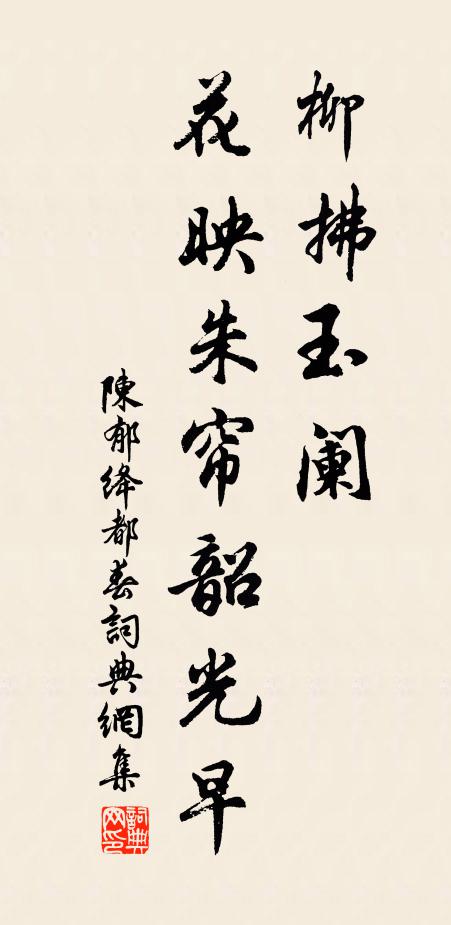 柳拂玉阑
花映朱帘韶光早
陳郁绛都春詞典網集
詞典网印